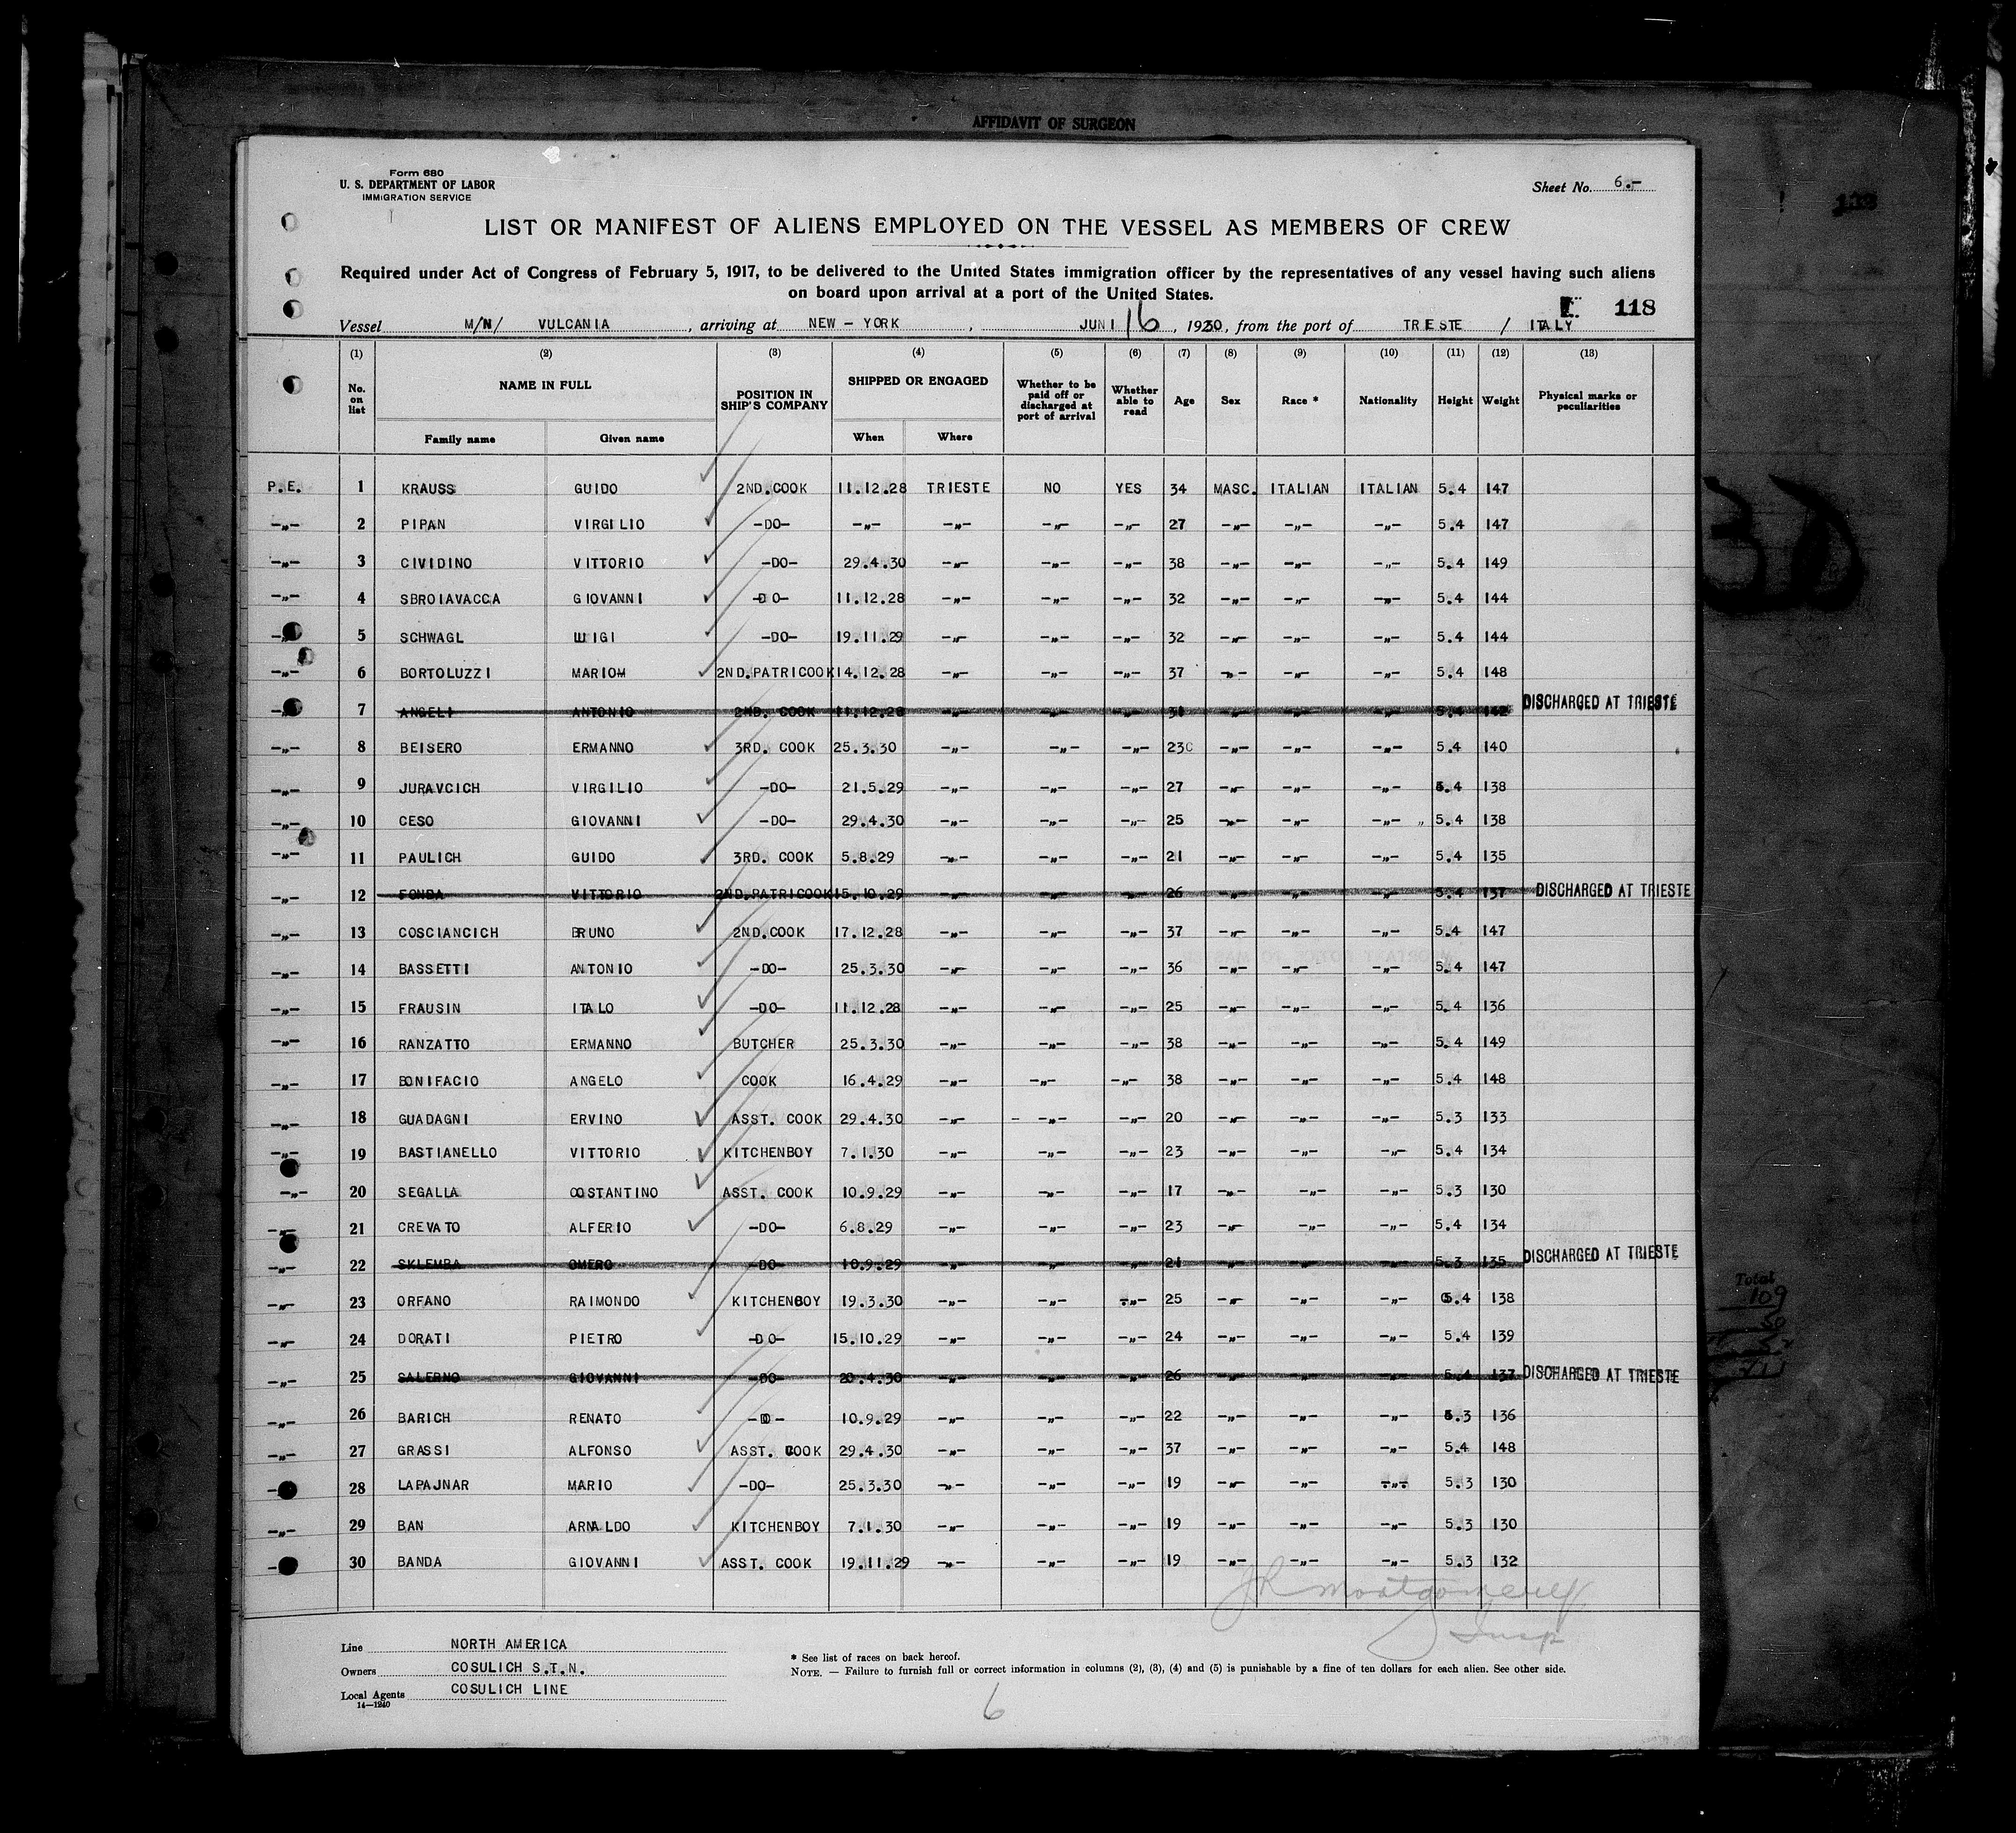 AFFIDAVIT OF SURGEON
Form 680
U. S. DEPARTMENT OF LABOR
IMMIGRATION SERVICE
Sheet No. 6.-
LIST OR MANIFEST OF ALIENS EMPLOYED ON THE VESSEL AS MEMBERS OF CREW
Required under Act of Congress of February 5, 1917, to be delivered to the United States immigration officer by the representatives of any vessel having such aliens
on board upon arrival at a port of the United States.
118
Vessel M/N/ VULCANIA, arriving at NEW - YORK, JUNI 16, 1930, from the port of TRIESTE / ITALY
(1) (2) (3) (4) (5) (6) (7) (8) (9) (10) (11) (12) (13)
No. on list NAME IN FULL POSITION IN SHIP'S COMPANY SHIPPED OR ENGAGED Whether to be paid off or discharged at port of arrival Whether able to read Age Sex Race * Nationality Height Weight Physical marks or peculiarities
Family name Given name When Where
P.E. 1 KRAUSS GUIDO 2ND.COOK 11.12.28 TRIESTE NO YES 34 MASC. ITALIAN ITALIAN 5.4 147
-"- 2 PIPAN VIRGILIO -DO- -"- -"- -"- -"- 27 -"- -"- -"- 5.4 147
-"- 3 CIVIDINO VITTORIO -DO- 29.4.30 -"- -"- -"- 38 -"- -"- -"- 5.4 149
-"- 4 SBROIAVACCA GIOVANNI -DO- 11.12.28 -"- -"- -"- 32 -"- -"- -"- 5.4 144
-"- 5 SCHWAGL LUIGI -DO- 19.11.29 -"- -"- -"- 32 -"- -"- -"- 5.4 144
-"- 6 BORTOLUZZI MARIOM 2ND.PATRICOOK 14.12.28 -"- -"- -"- 37 -"- -"- -"- 5.4 148
-"- 7 ANGELI ANTONIO 2ND. COOK 11.12.28 -"- -"- -"- 31 -"- -"- -"- 5.4 142 DISCHARGED AT TRIESTE
-"- 8 BEISERO ERMANNO 3RD. COOK 25.3.30 -"- -"- -"- 23 -"- -"- -"- 5.4 140
-"- 9 JURAVCICH VIRGILIO -DO- 21.5.29 -"- -"- -"- 27 -"- -"- -"- 5.4 138
-"- 10 CESO GIOVANNI -DO- 29.4.30 -"- -"- -"- 25 -"- -"- -"- " 5.4 138
-"- 11 PAULICH GUIDO 3RD. COOK 5.8.29 -"- -"- -"- 21 -"- -"- -"- 5.4 135
-"- 12 FONDA VITTORIO 2ND.PATRICOOK 15.10.29 -"- -"- -"- 26 -"- -"- -"- 5.4 137 DISCHARGED AT TRIESTE
-"- 13 COSCIANCICH BRUNO 2ND.COOK 17.12.28 -"- -"- -"- 37 -"- -"- -"- 5.4 147
-"- 14 BASSETTI ANTONIO -DO- 25.3.30 -"- -"- -"- 36 -"- -"- -"- 5.4 147
-"- 15 FRAUSIN ITALO -DO- 11.12.28 -"- -"- -"- 25 -"- -"- -"- 5.4 136
-"- 16 RANZATTO ERMANNO BUTCHER 25.3.30 -"- -"- -"- 38 -"- -"- -"- 5.4 149
-"- 17 BONIFACIO ANGELO COOK 16.4.29 -"- -"- -"- 38 -"- -"- -"- 5.4 148
-"- 18 GUADAGNI ERVINO ASST. COOK 29.4.30 -"- - -"- -"- 20 -"- -"- -"- 5.3 133
-"- 19 BASTIANELLO VITTORIO KITCHENBOY 7.1.30 -"- -"- -"- 23 -"- -"- -"- 5.4 134
-"- 20 SEGALLA COSTANTINO ASST. COOK 10.9.29 -"- -"- -"- 17 -"- -"- -"- 5.3 130
-"- 21 CREVATO ALFERIO -DO- 6.8.29 -"- -"- -"- 23 -"- -"- -"- 5.4 134
-"- 22 SKLEMBA OMERO -DO- 10.9.29 -"- -"- -"- 21 -"- -"- -"- 5.3 135 DISCHARGED AT TRIESTE
-"- 23 ORFANO RAIMONDO KITCHENBOY 19.3.30 -"- -"- -"- 25 -"- -"- -"- 5.4 138
-"- 24 DORATI PIETRO -DO- 15.10.29 -"- -"- -"- 24 -"- -"- -"- 5.4 139
-"- 25 SALERNO GIOVANNI -DO- 20.4.30 -"- -"- -"- 26 -"- -"- -"- 5.4 137 DISCHARGED AT TRIESTE
-"- 26 BARICH RENATO -DO- 10.9.29 -"- -"- -"- 22 -"- -"- -"- 5.3 136
-"- 27 GRASSI ALFONSO ASST. COOK 29.4.30 -"- -"- -"- 37 -"- -"- -"- 5.4 148
-"- 28 LAPAJNAR MARIO -DO- 25.3.30 -"- -"- -"- 19 -"- -"- -"- 5.3 130
-"- 29 BAN ARNALDO KITCHENBOY 7.1.30 -"- -"- -"- 19 -"- -"- -"- 5.3 130
-"- 30 BANDA GIOVANNI ASST. COOK 19.11.29 -"- -"- -"- 19 -"- -"- -"- 5.3 132
JR Montgomery
Insp
Line NORTH AMERICA
Owners COSULICH S.T.N.
Local Agents COSULICH LINE
14-1240
* See list of races on back hereof.
NOTE. — Failure to furnish full or correct information in columns (2), (3), (4) and (5) is punishable by a fine of ten dollars for each alien. See other side.
6
Total
109